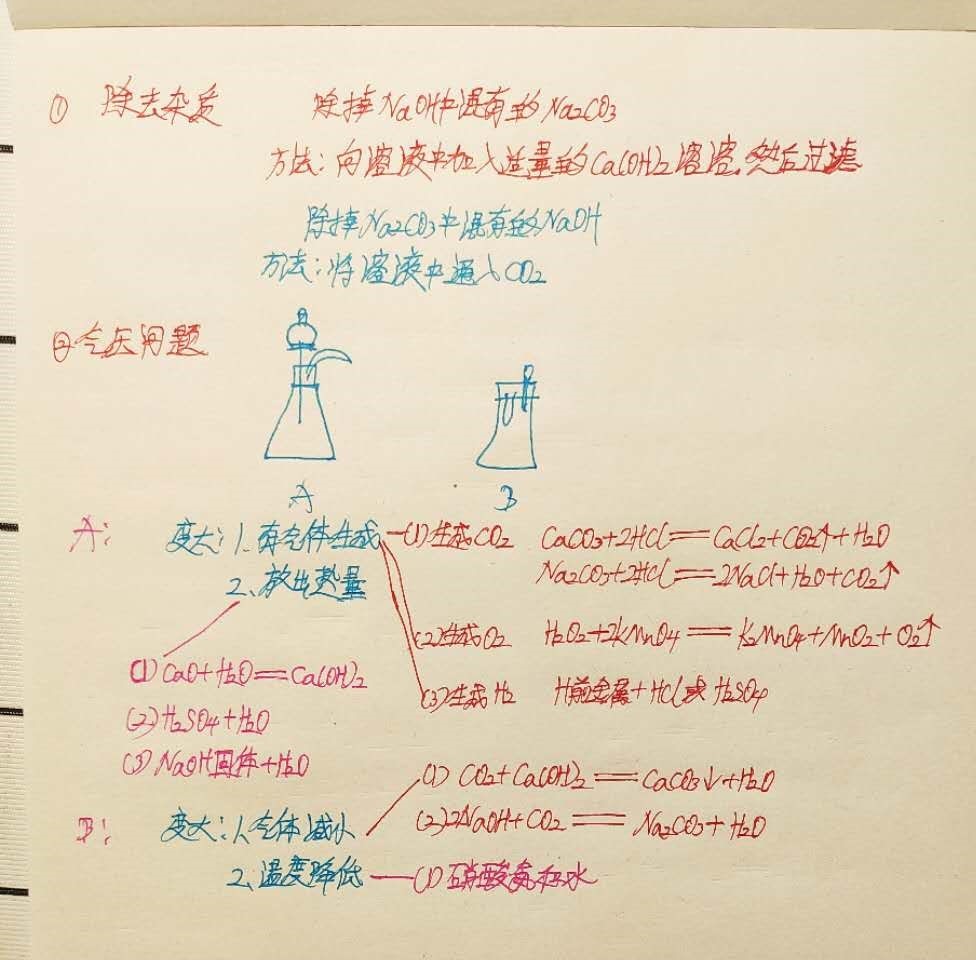 ① 除去杂质 除掉NaOH中混有的Na₂CO₃
方法:向溶液中加入适量的Ca(OH)₂溶液,然后过滤
除掉Na₂CO₃中混有的NaOH
方法:将溶液中通入CO₂
②气压问题
A B
A: 变大:1.有气体生成 (1)生成CO₂ CaCO₃+2HCl══CaCl₂+CO₂↑+H₂O
Na₂CO₃+2HCl══2NaCl+H₂O+CO₂↑
2、放出热量
(2)生成O₂ H₂O₂+2KMnO₄══K₂MnO₄+MnO₂+O₂↑
(1)CaO+H₂O══Ca(OH)₂
(3)生成H₂ H前金属+HCl或H₂SO₄
(2)H₂SO₄+H₂O
(3)NaOH固体+H₂O
(1) CO₂+Ca(OH)₂══CaCO₃↓+H₂O
B: 变大:1.气体减小 (2)2NaOH+CO₂══Na₂CO₃+H₂O
2、温度降低 (1)硝酸氨和水